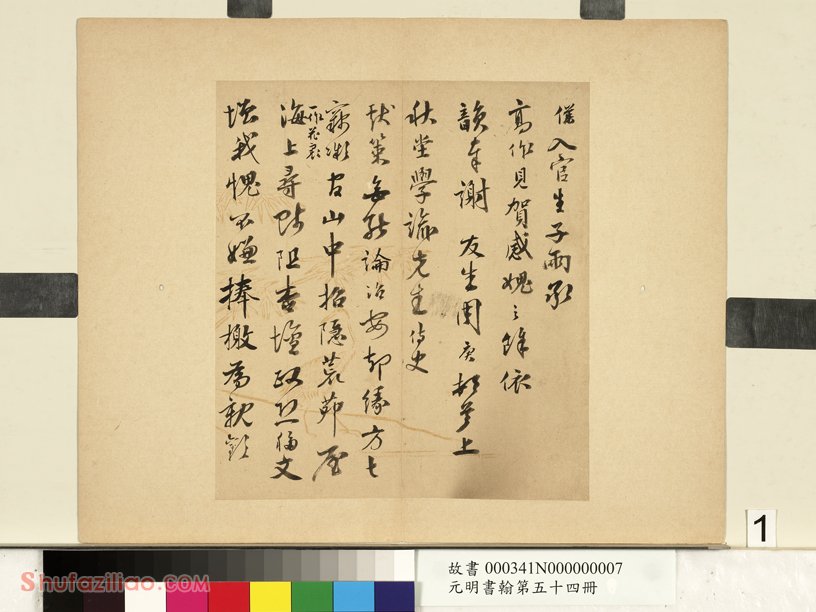 僕入官生子兩承
高作見賀感愧之餘依
韻奉謝 友生周庚 上
秋堂學諭先生侍史
獻策無能論治安却緣方士
山中招隱荒茆屋
海上尋 阻杏壇 文
我愧不嫌捧檄為親
1
故書 000341N000000007
元明書翰第五十四冊
Shufaziliao.com